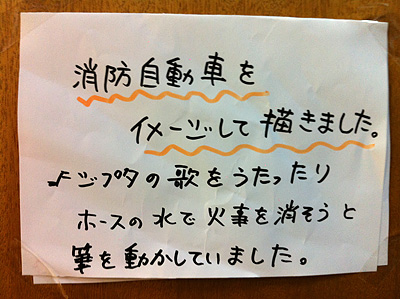 消防自動車を
イメージして描きました。
♪ジプタの歌をうたったり
ホースの水で火事を消そうと
筆を動かしていました。